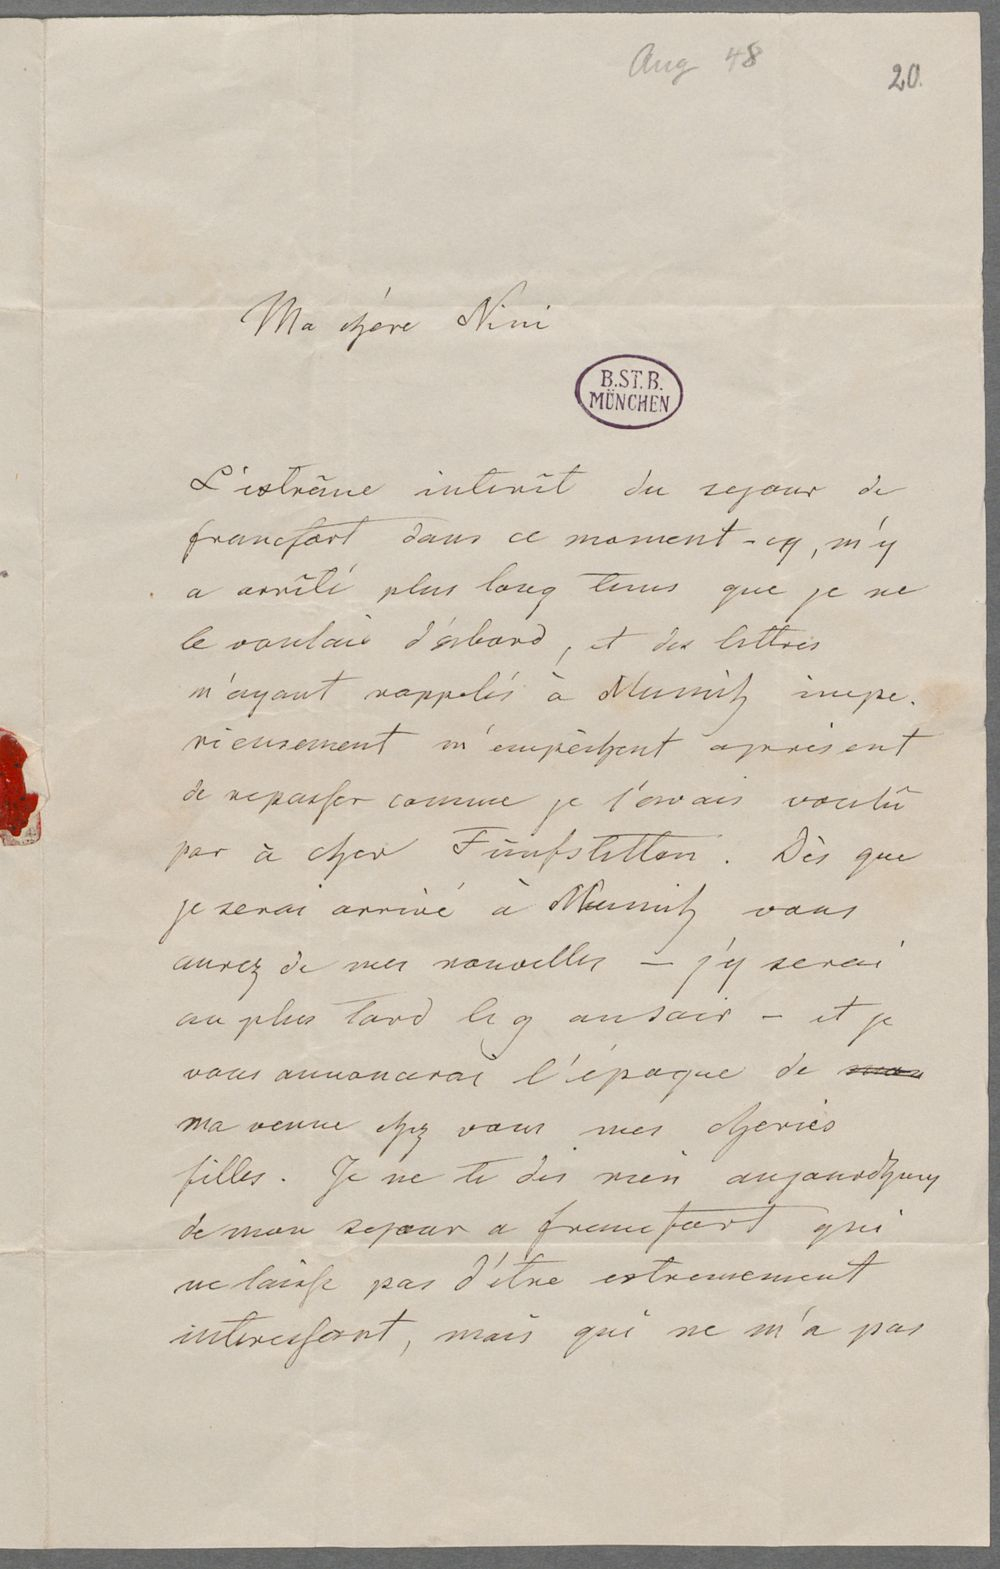 Aug 48
20.
Ma chére Nini
B.ST.B.
MÜNCHEN
L'extrême interêt du sejour de
francfort dans ce moment-cy, m'y
a arrêté plus long tems que je ne
le voulais d'abord, et des lettres
m'ayant rappelés à Munich impe-
rieusement m'empêchent apprisent
de repasser comme je l'avais voulû
par à cher Fünfstetten. Dès que
je serai arrivé à Munich vous
aurez de mes nouvelles – j'y serai
au plus tard le 9 au soir – et je
vous annoncerai l'époque de
ma venue chez vous mes cheries
filles. Je ne te dis rien aujourdhuy
de mon sejour a francfort qui
ne laisse pas d'être extremement
interessant, mais qui ne m'a pas